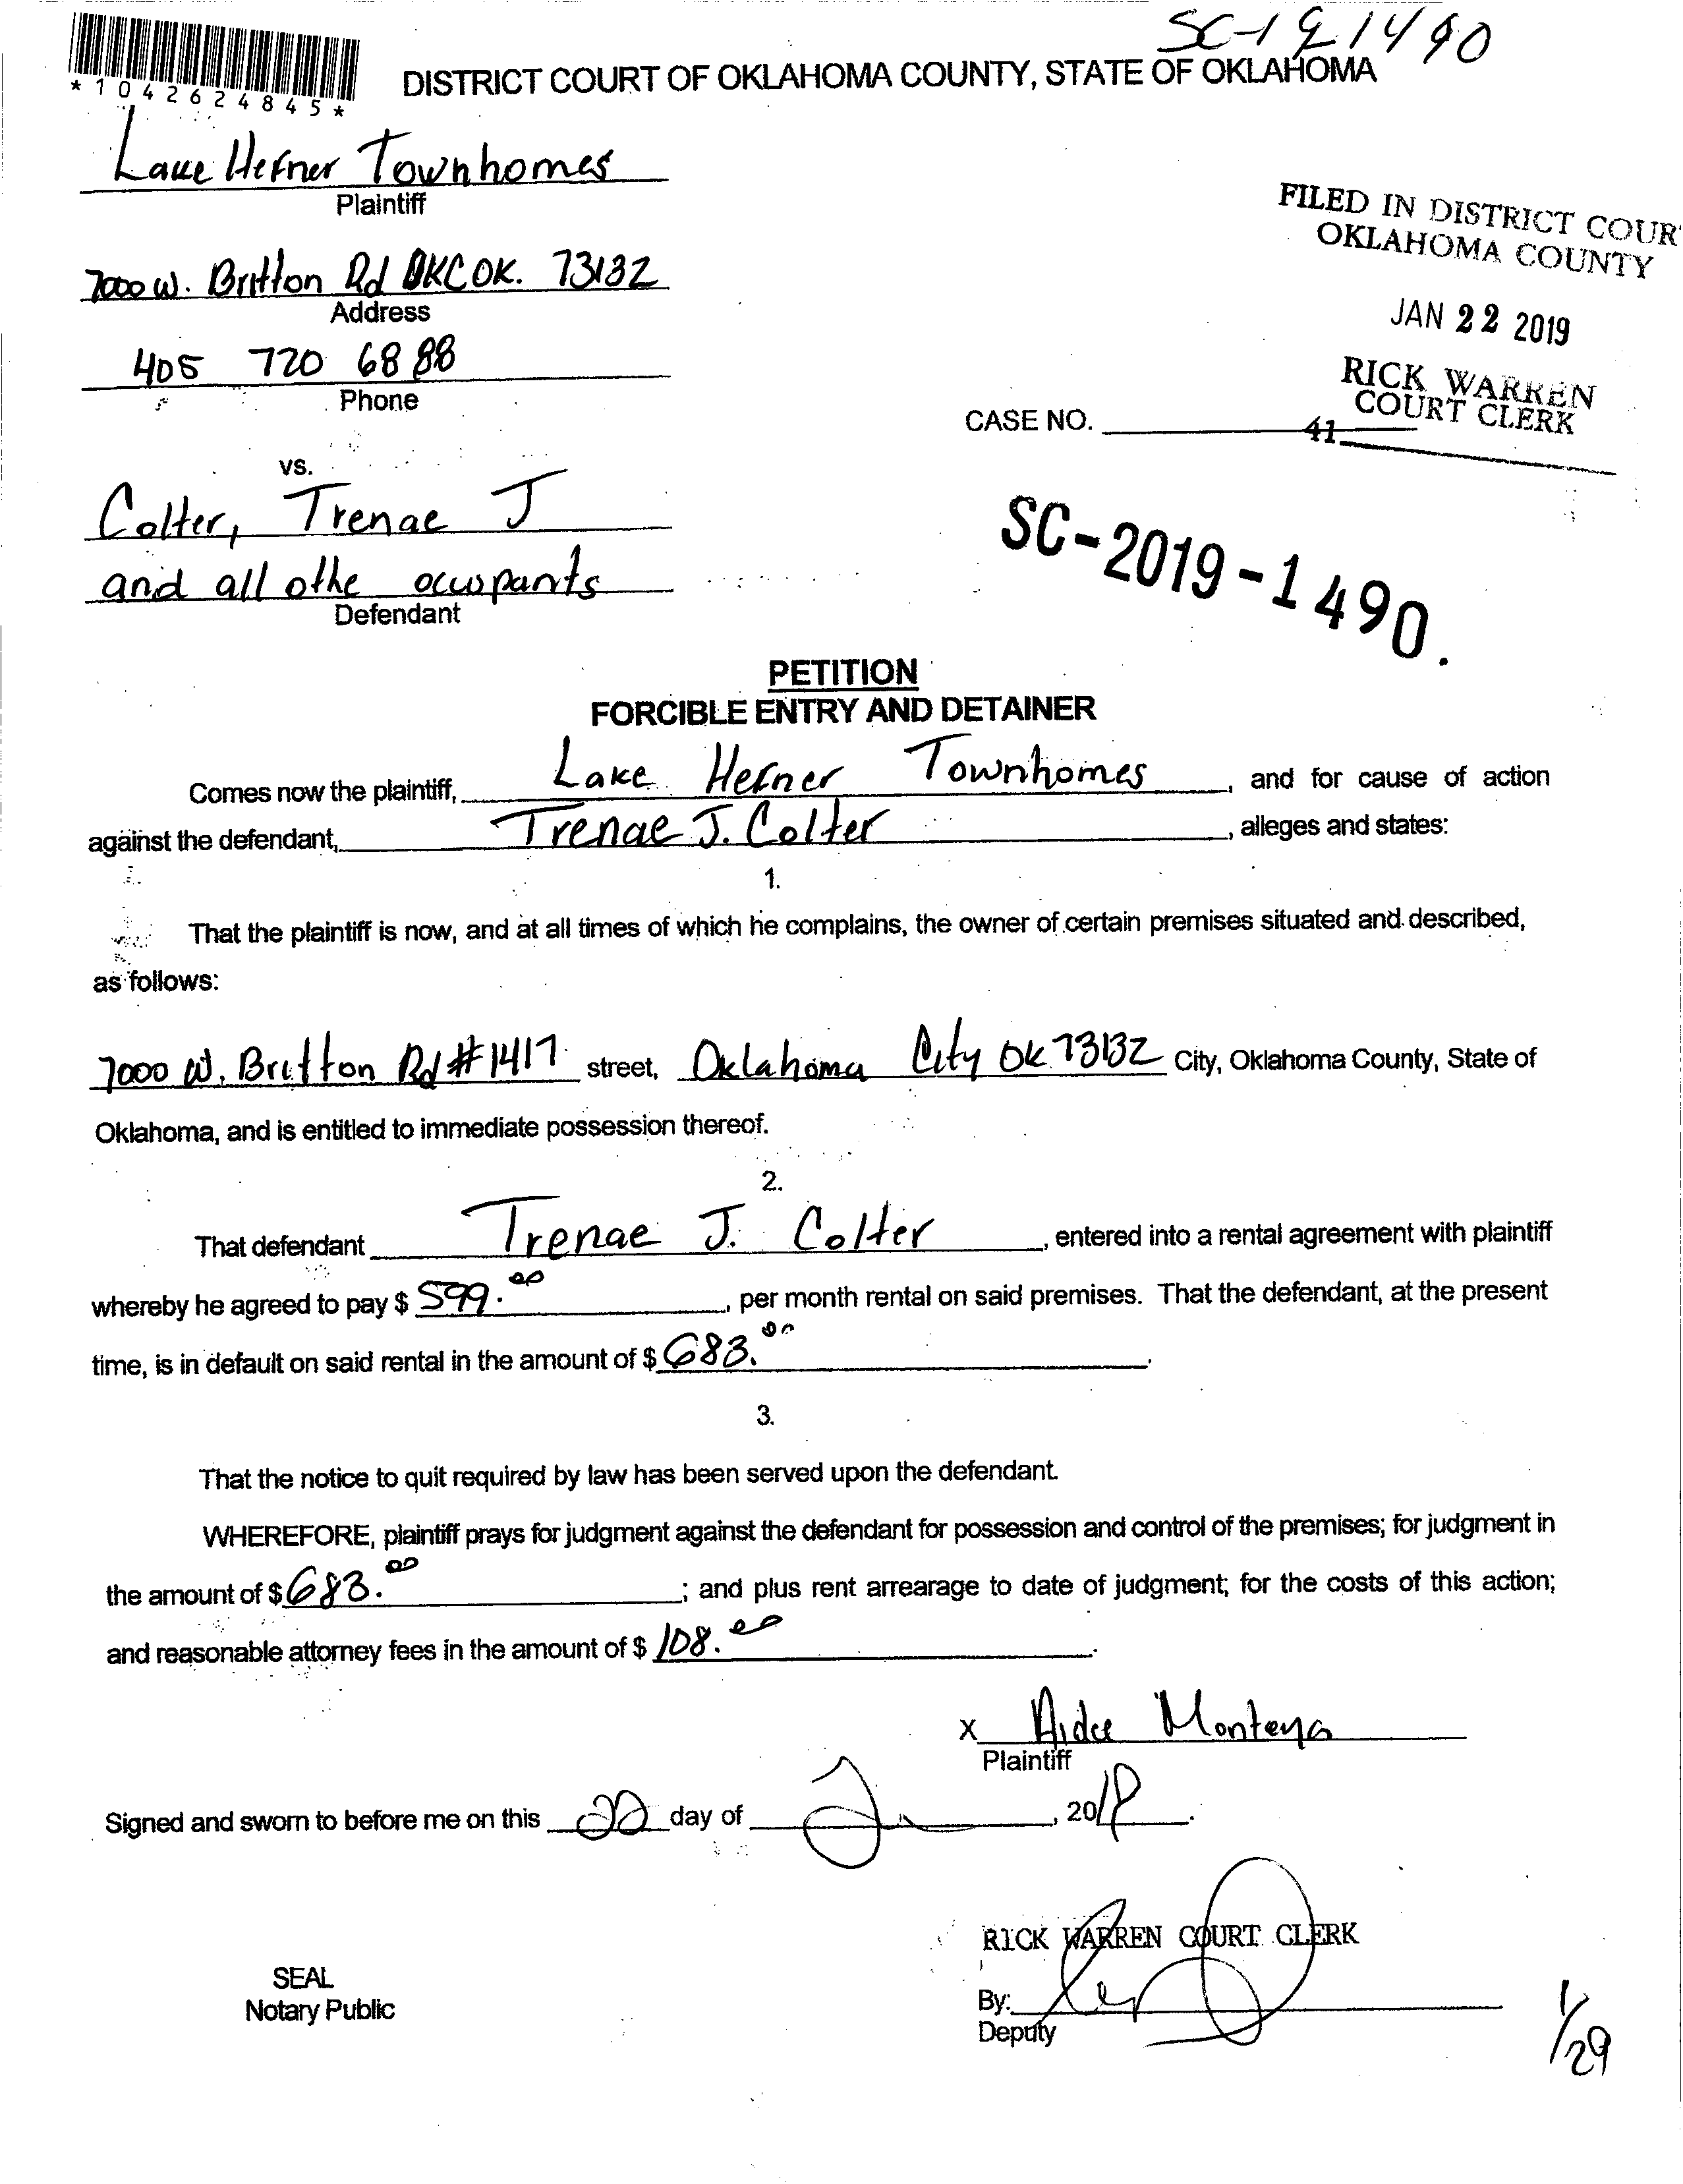 SC-19 1490
*1042624845*
DISTRICT COURT OF OKLAHOMA COUNTY, STATE OF OKLAHOMA
Lake Hefner Townhomes
Plaintiff
7000 W. Britton Rd OKC OK. 73132
Address
405 720 6888
Phone
FILED IN DISTRICT COUR
OKLAHOMA COUNTY
JAN 22 2019
RICK WARREN
COURT CLERK
41
CASE NO.
vs.
Colter, Trenae J
and all othe occupants
Defendant
SC-2019-1490.
PETITION
FORCIBLE ENTRY AND DETAINER
Comes now the plaintiff, Lake Hefner Townhomes, and for cause of action
against the defendant, Trenae J. Colter, alleges and states:
1.
That the plaintiff is now, and at all times of which he complains, the owner of certain premises situated and described,
as follows:
7000 W. Britton Rd #1417 street, Oklahoma City OK 73132 City, Oklahoma County, State of
Oklahoma, and is entitled to immediate possession thereof.
2.
That defendant Trenae J. Colter, entered into a rental agreement with plaintiff
whereby he agreed to pay $ 599.00, per month rental on said premises. That the defendant, at the present
time, is in default on said rental in the amount of $ 683.00.
3.
That the notice to quit required by law has been served upon the defendant.
WHEREFORE, plaintiff prays for judgment against the defendant for possession and control of the premises; for judgment in
the amount of $ 683.00; and plus rent arrearage to date of judgment; for the costs of this action;
and reasonable attorney fees in the amount of $ 108.00.
x Aidee Montoya
Plaintiff
Signed and sworn to before me on this 22 day of Jan, 2019.
RICK WARREN COURT CLERK
SEAL
Notary Public
By:
Deputy
1/29